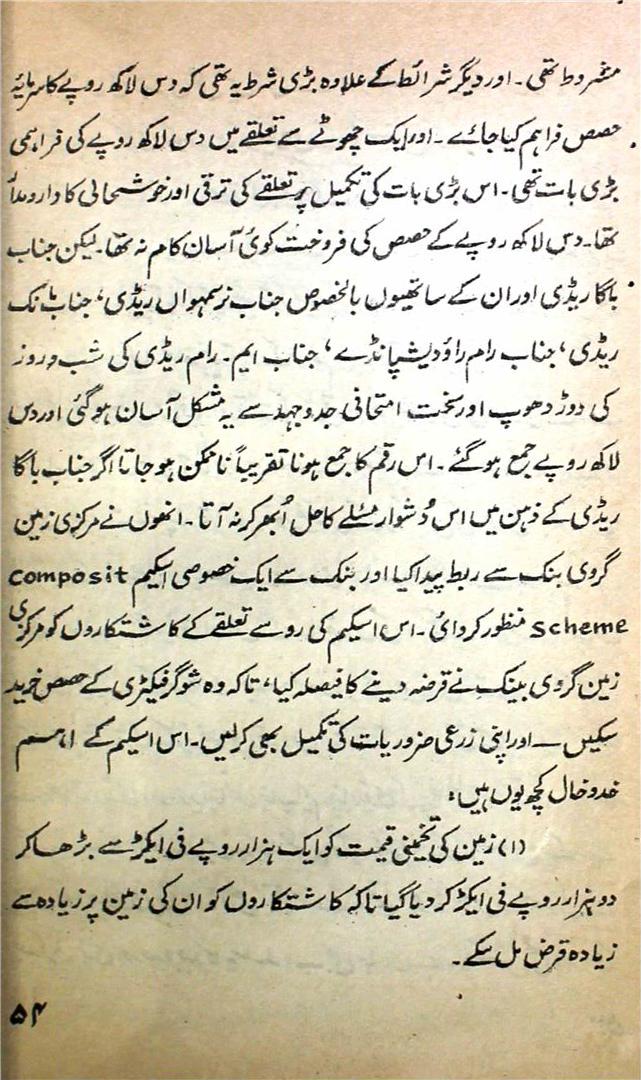 مشروط تھی۔ اور دیگر شرائط کے علاوہ بڑی شرط یہ تھی کہ دس لاکھ روپے کا سرمایۂ
حصص فراہم کیا جائے۔ اور ایک چھوٹے سے تعلقے میں دس لاکھ روپے کی فراہمی
بڑی بات تھی۔ اس بڑی بات کی تکمیل پر تعلقے کی ترقی اور خوشحالی کا دارومدار
تھا۔ دس لاکھ روپے کے حصص کی فروخت کوئی آسان کام نہ تھا۔ لیکن جناب
باگا ریڈی اور ان کے ساتھیوں بالخصوص جناب نرسمہواں ریڈی، جناب مانک
ریڈی، جناب رام راؤ دیشپانڈے، جناب ایم۔ رام ریڈی کی شب و روز
کی دوڑ دھوپ اور سخت امتحانی جدوجہد سے یہ مشکل آسان ہوگئی اور دس
لاکھ روپے جمع ہوگئے۔ اس رقم کا جمع ہونا تقریباً ناممکن ہوجاتا اگر جناب باگا
ریڈی کے ذہن میں اس دُشوار مسئلے کا حل اُبھر کر نہ آتا۔ انھوں نے مرکزی زمین
گروی بنک سے ربط پیدا کیا اور بنک سے ایک خصوصی اسکیم composit
scheme منظور کروائی۔ اس اسکیم کی رو سے تعلقے کے کاشتکاروں کو مرکزی
زمین گروی بینک نے قرضہ دینے کا فیصلہ کیا، تاکہ وہ شوگر فیکٹری کے حصص خرید
سکیں — اور اپنی زرعی ضروریات کی تکمیل بھی کرلیں۔ اس اسکیم کے اہم
خدوخال کچھ یوں ہیں:
(۱) زمین کی تخمینی قیمت کو ایک ہزار روپے فی ایکڑ سے بڑھا کر
دو ہزار روپے فی ایکڑ کر دیا گیا تاکہ کاشتکاروں کو ان کی زمین پر زیادہ سے
زیادہ قرض مل سکے۔
۵۴